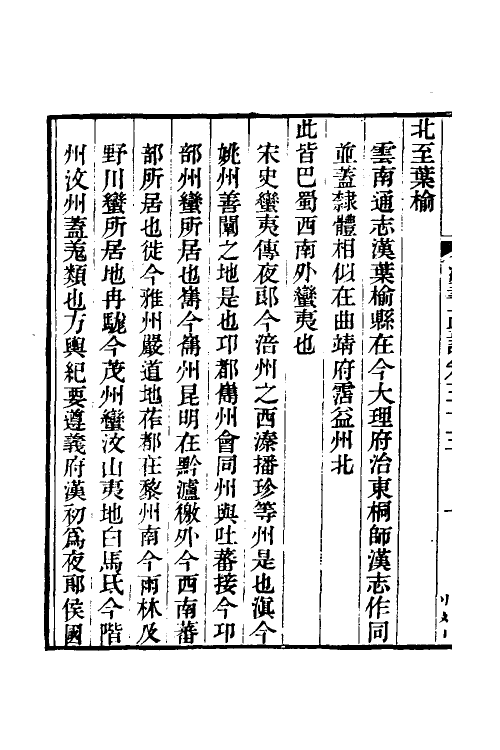 北至葉榆
雲南通志漢葉榆縣在今大理府治東桐師漢志作同
並蓋隸體相似在曲靖府霑益州北
此皆巴蜀西南外蠻夷也
宋史蠻夷傳夜郎今涪州之西溱播珍等州是也滇今
姚州善闡之地是也邛都巂州會同州與吐蕃接今邛
部州蠻所居也巂今巂州昆明在黔瀘徼外今西南蕃
部所居也徙今雅州嚴道地莋都在黎州南今兩林及
野川蠻所居地冉駹今茂州蠻汶山夷地白馬氐今階
州汶州蓋羌類也方輿紀要遵義府漢初爲夜郎侯國